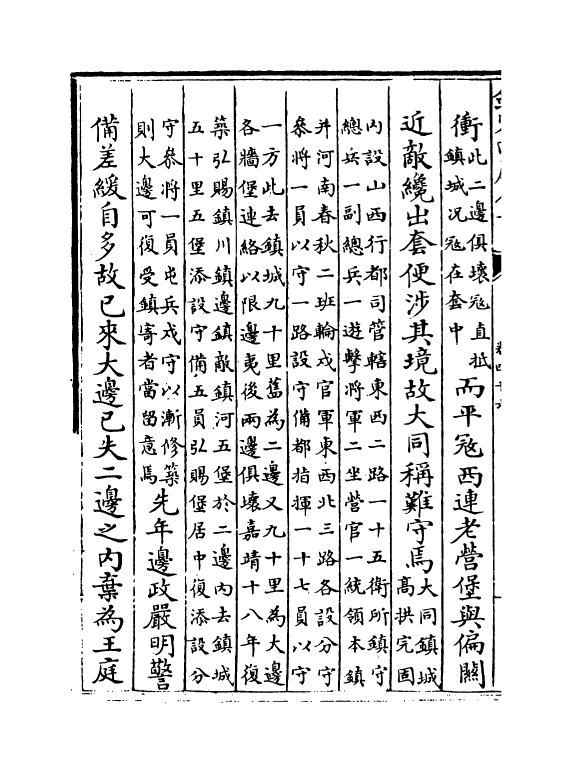 衝此二邊俱壞冦直抵鎮城况冦在套中而平冦西連老營堡與偏關
近敵纔出套便涉其境故大同稱難守焉大同鎮城高拱完固
内設山西行都司管轄東西二路一十五衛所鎮守
總兵一副總兵一遊擊將軍二坐營官一統領本鎮
并河南春秋二班輪戍官軍東西北三路各設分守
叅將一員以守一路設守備都指揮一十七員以守
一方此去鎮城九十里舊為二邊又九十里為大邊
各牆堡連絡以限邊夷後兩邊俱壞嘉靖十八年復
築弘賜鎮川鎮邊鎮敵鎮河五堡於二邊内去鎮城
五十里五堡添設守備五員弘賜堡居中復添設分
守叅將一員屯兵戍守以漸修築則大邊可復受鎮寄者當留意焉先年邊政嚴明警
備差緩自多故已來大邊已失二邊之内棄為王庭